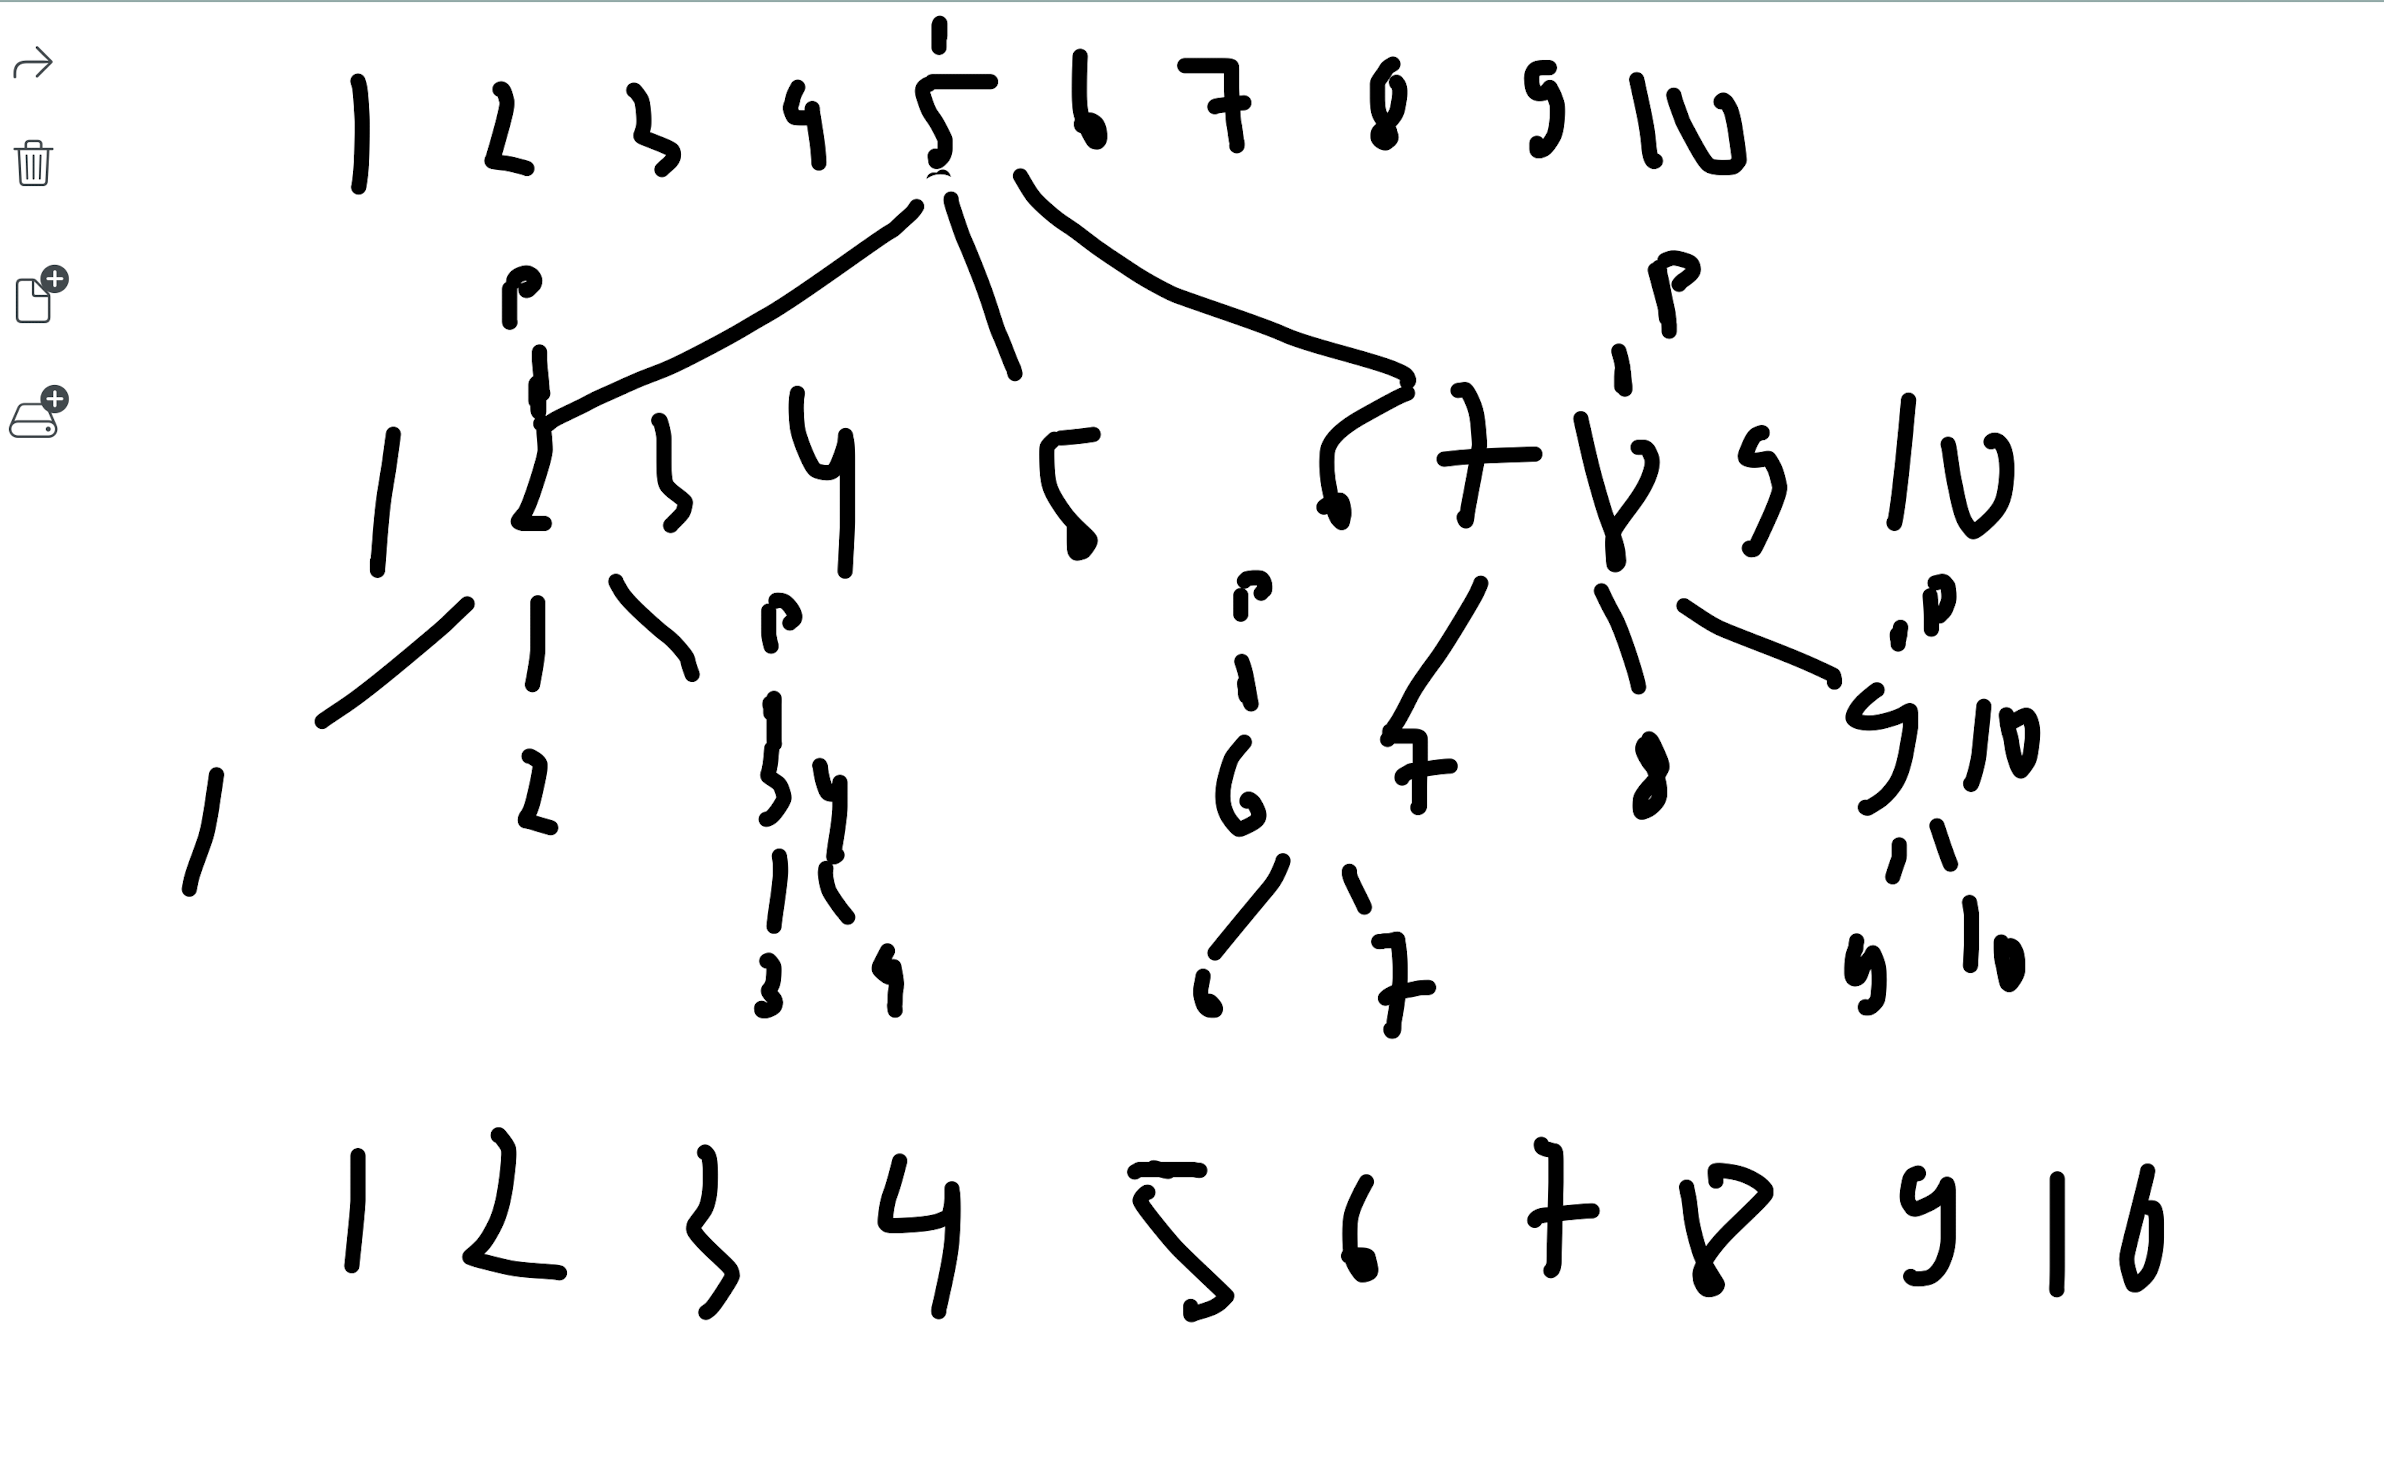 1 2 3 4 5 6 7 8 9 10
P P
1 2 3 4 5 6 7 8 9 10
P P P
1 2 3 4 6 7 8 9 10
3 4 6 7 9 10
1 2 3 4 5 6 7 8 9 10